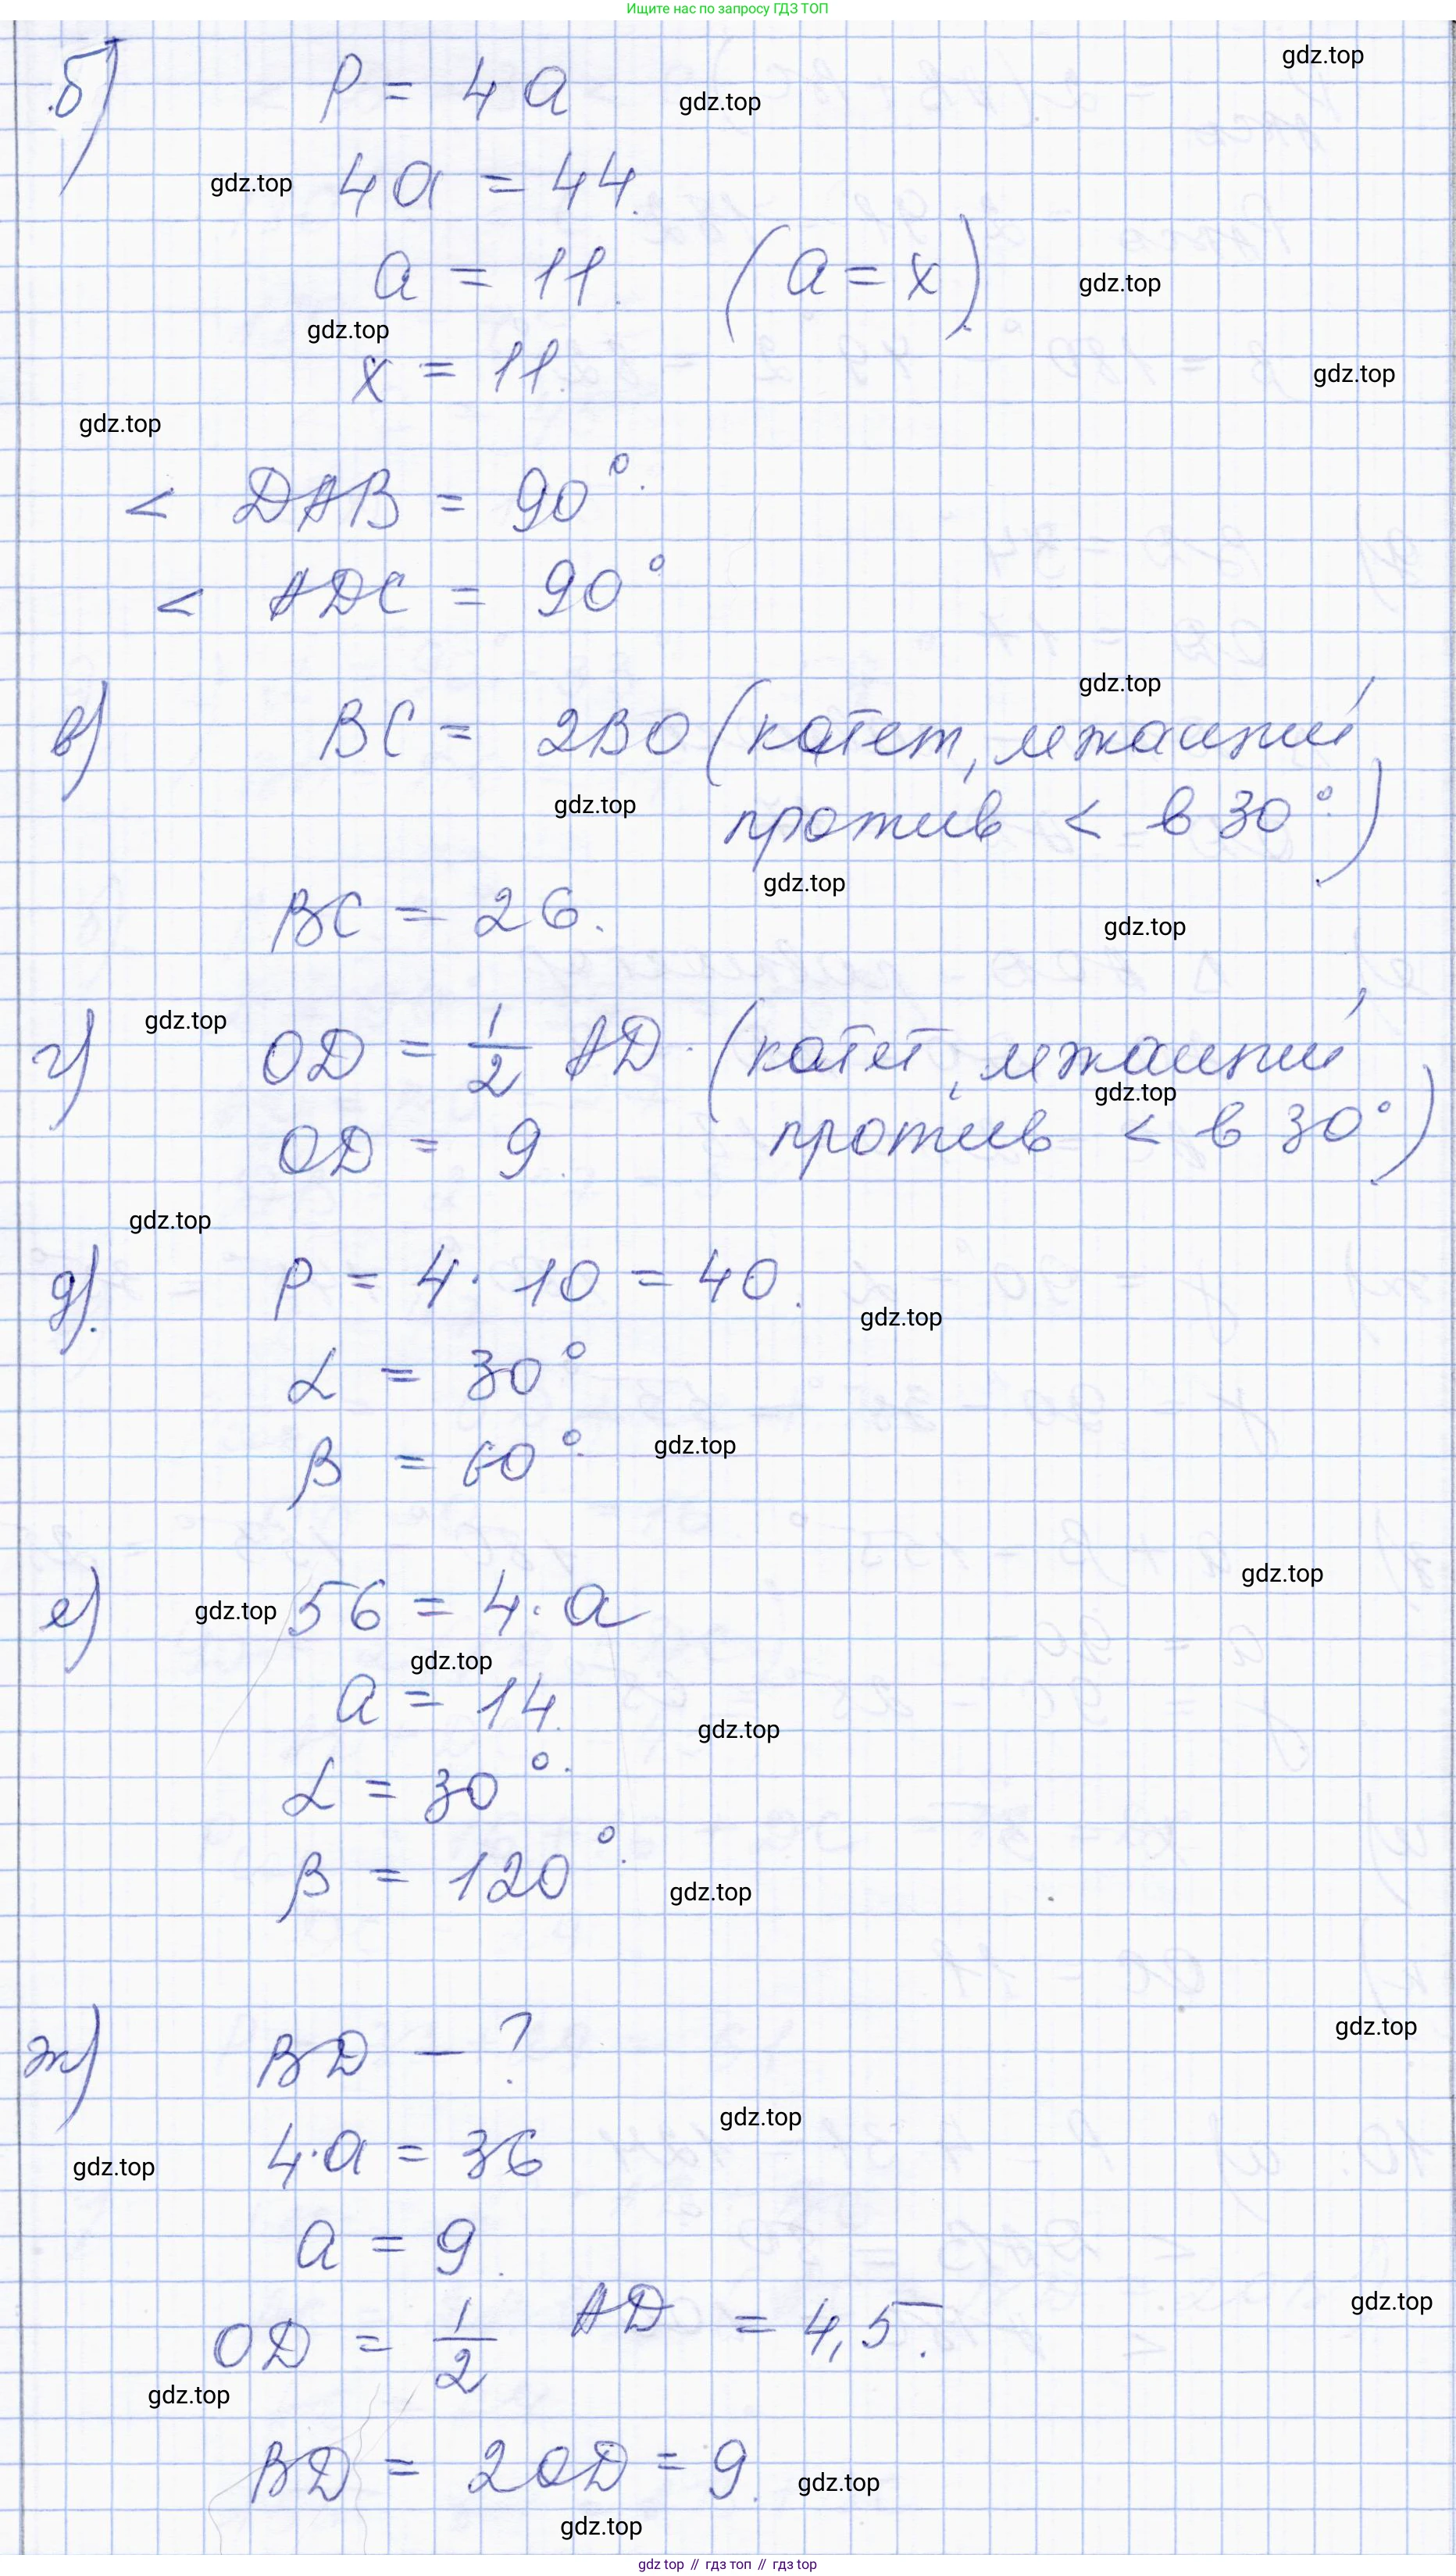 Ищите нас по запросу ГДЗ ТОП
gdz.top
б) P = 4a
gdz.top
gdz.top
4a = 44.
a = 11. (a = x).
gdz.top
gdz.top
x = 11.
gdz.top
gdz.top
< DAB = 90°.
< ADC = 90°
gdz.top
в) BC = 2BO (катет, лжащий
gdz.top
против < в 30°.)
gdz.top
BC = 26.
gdz.top
gdz.top
г) OD = 1/2 AD. (катет, лжащий
gdz.top
OD = 9. против < в 30°)
gdz.top
д). P = 4 · 10 = 40.
gdz.top
α = 30°
β = 60°.
gdz.top
gdz.top
е) 56 = 4 · a
gdz.top
gdz.top
a = 14.
gdz.top
α = 30°.
β = 120°.
gdz.top
gdz.top
ж) BD — ?
gdz.top
4 · a = 36
gdz.top
a = 9.
gdz.top
OD = 1/2 AD = 4,5.
gdz.top
BD = 2OD = 9.
gdz.top
gdz.top
gdz top // гдз топ // gdz top